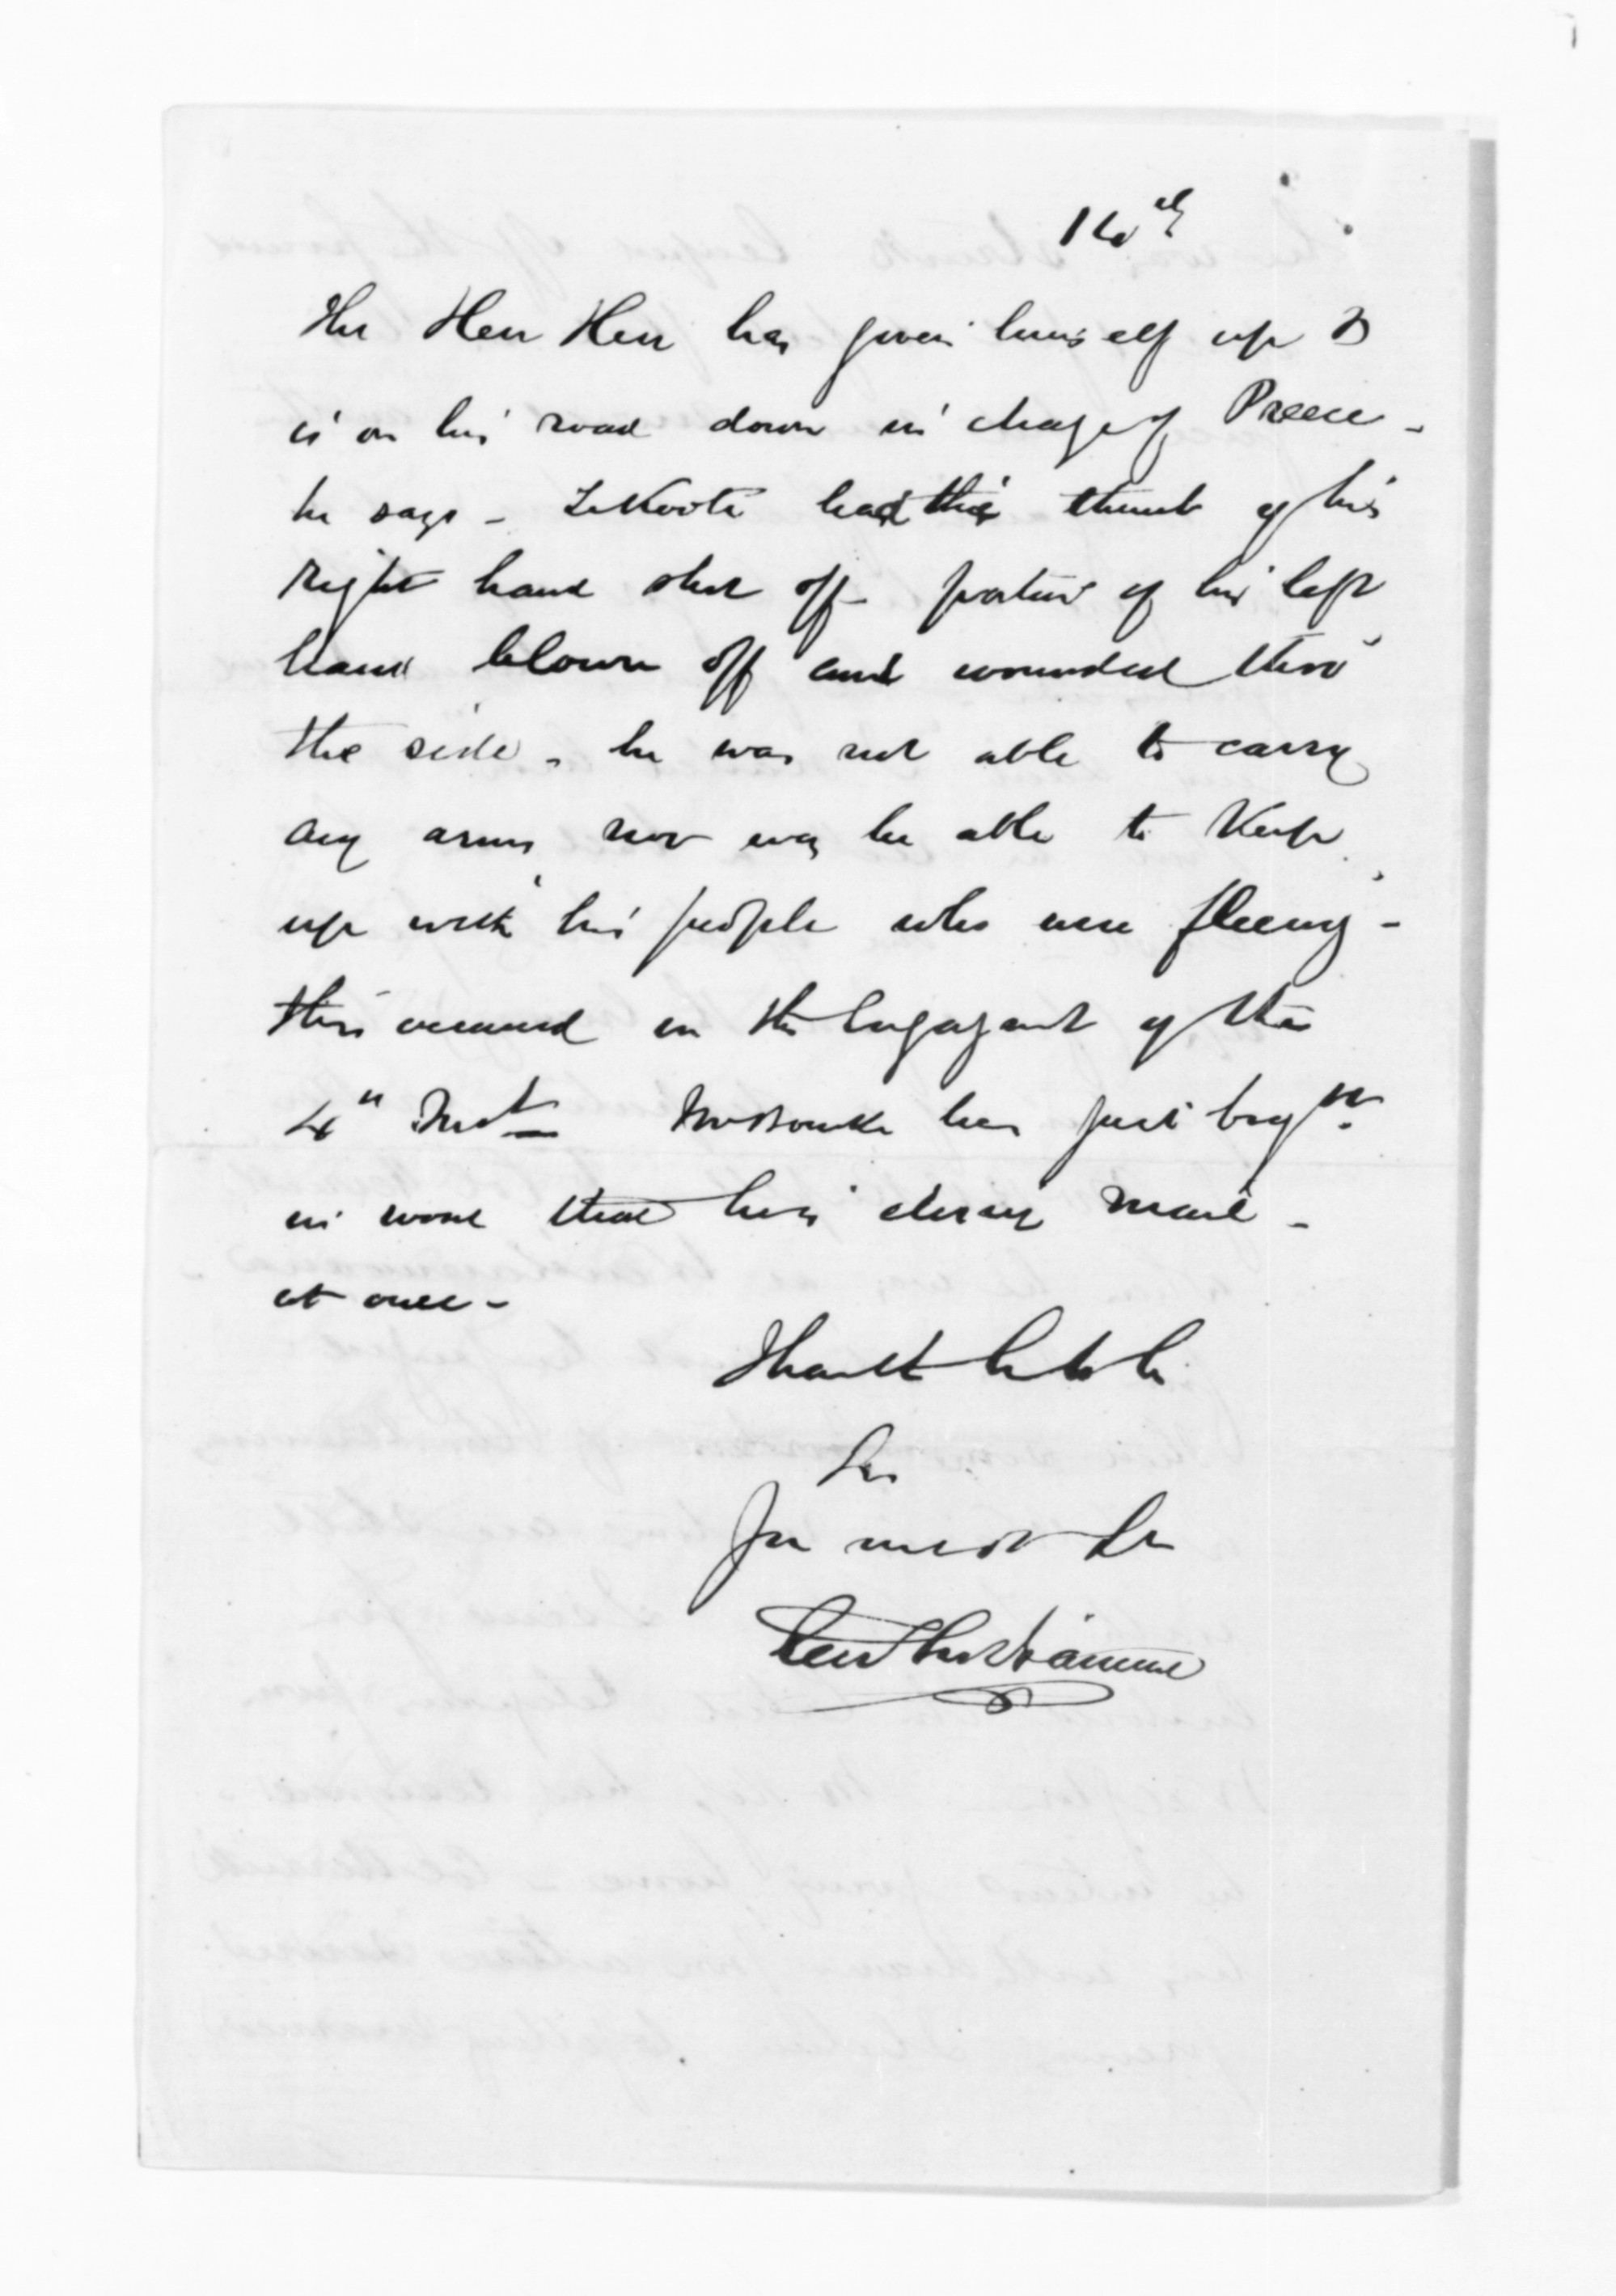 16th
Heu Heu has given himself up &
is on his road down in charge of Preece -
he says - TeKooti had the thumb of his
right hand shot off - portion of his left
hand blown off and wounded thro'
the side - he was not able to carry
any arms nor was he able to keep
up with his people who were fleeing -
this occurred in the Engagement of the
4th Inst has just brgt
in word that his mail -
at once -
In